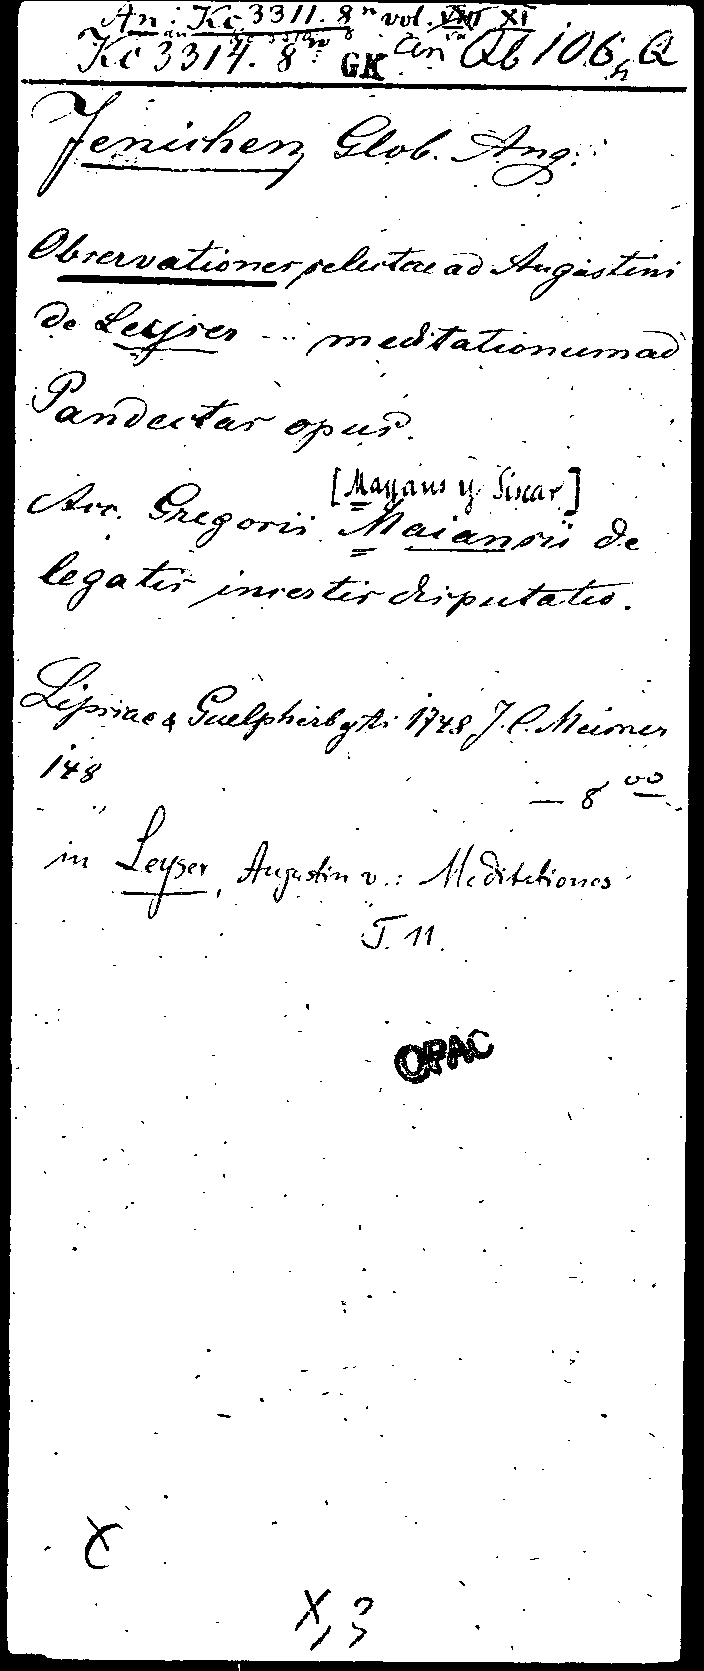 An: Kc 3311. 8º vol. XI
Kc 3314. 8º GK an Qb 106, Q
Jenichen, Glob. Aug.
Observationes selectae ad Augustini
de Leyser ... meditationum ad
Pandectas opus.
[Mayans y Siscar]
Acc. Gregorii Maiansii de
legatis incertis disputatio.
Lipsiae & Guelpherbyti 1748 J. C. Meisner
148
— 8 00
in Leyser, Augustin v.: Meditationes
T. 11.
OPAC
X, 3